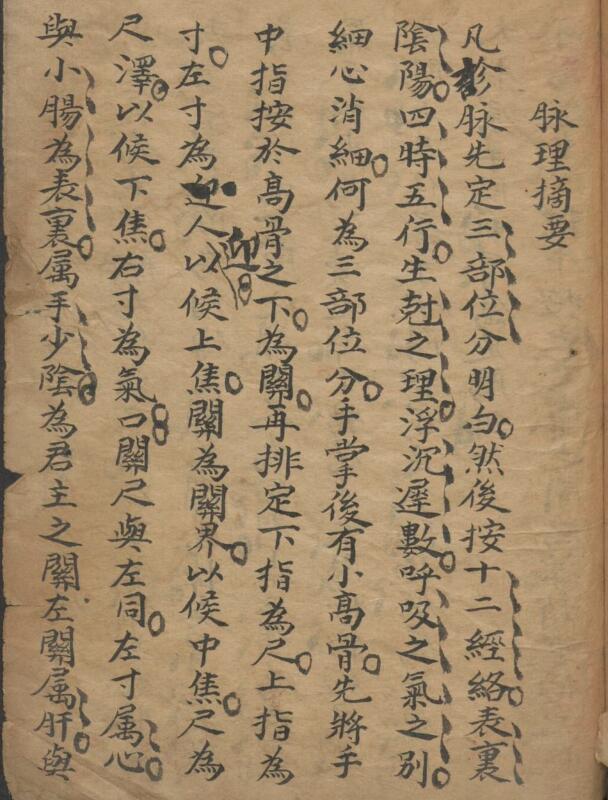 脉理摘要
凡診脉先定三部位分明白然後按十二經絡表裏
陰陽四時五行生尅之理浮沉遲數呼吸之氣之別
細心消細何為三部位分手掌後有小高骨先將手
中指按於高骨之下為關再排定下指為尺上指為
寸左寸為迎人以候上焦關為關界以候中焦尺為
尺澤以候下焦右寸為氣口關尺與左同左寸属心
與小腸為表裏属手少陰為君主之關左關属肝與